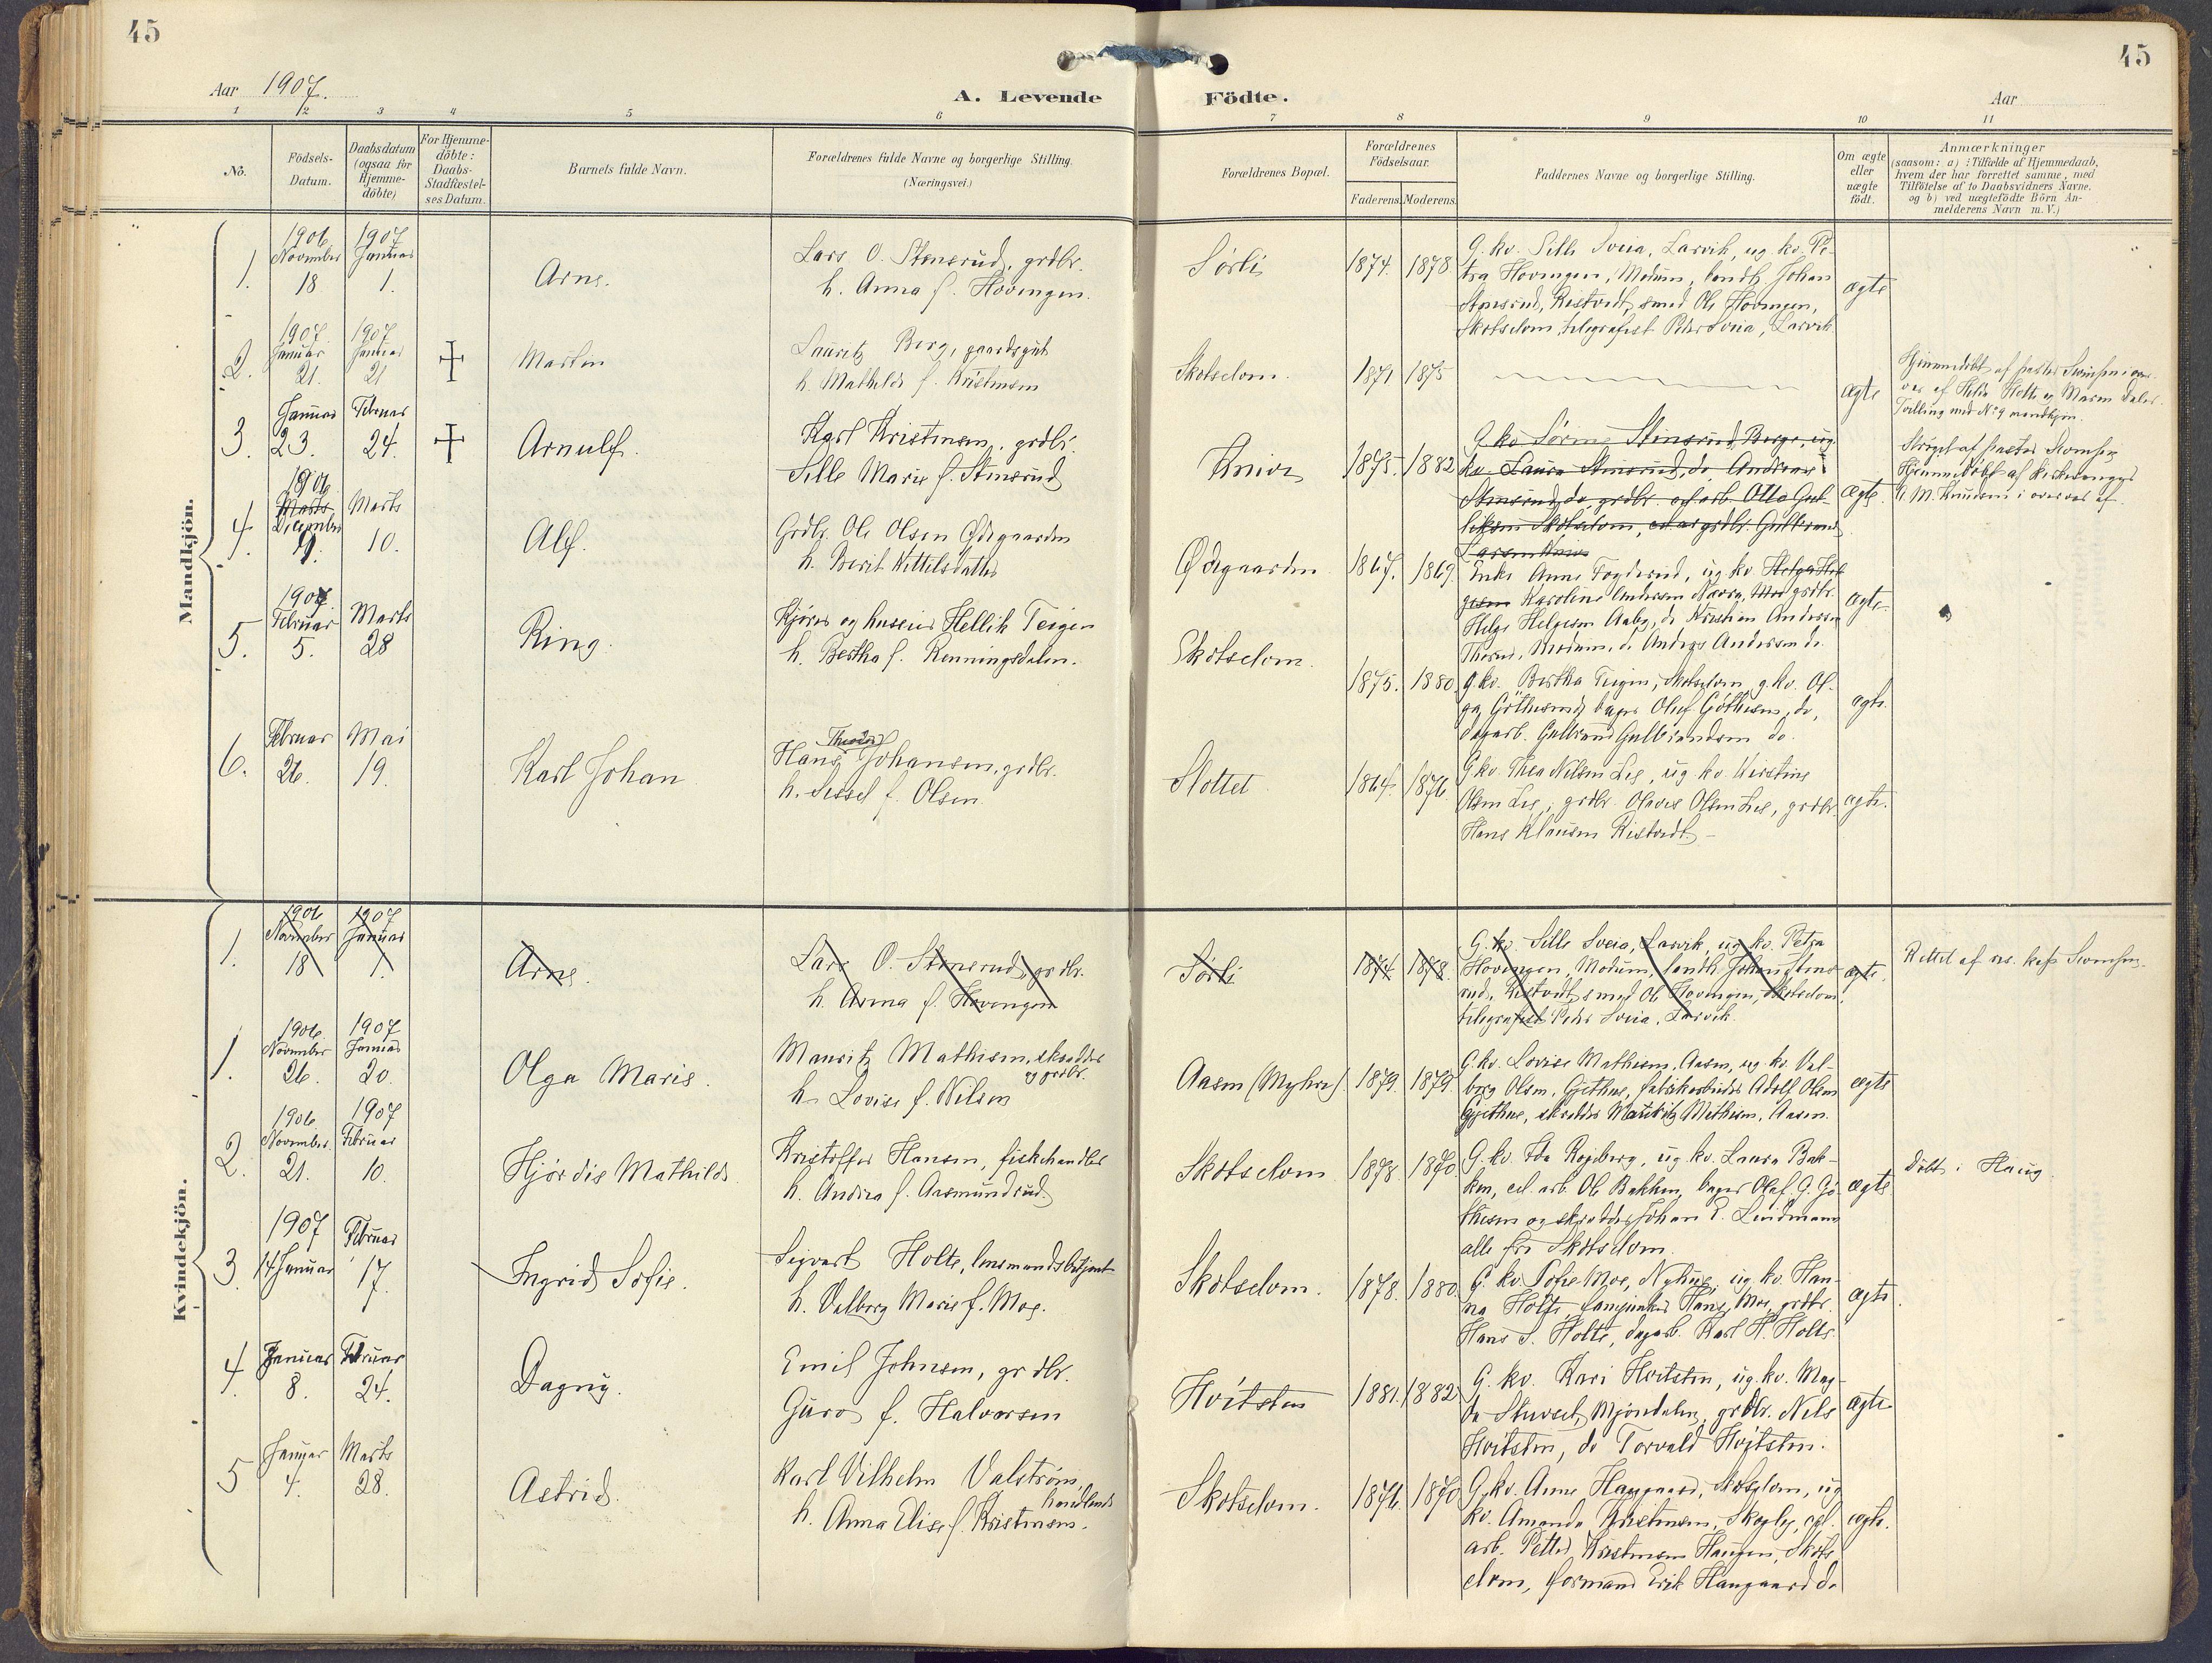 45
45
Aar 1907.
A. Levende Födte.
Aar
1 2 3 4 5 6 7 8 9 10 11
No.
Födsels-Datum.
Daabsdatum (ogsaa for Hjemme-döbte)
For Hjemme-döbte: Daabs-Stadfæstel-ses Datum.
Barnets fulde Navn.
Forældrenes fulde Navne og borgerlige Stilling.
(Næringsvei.)
Forældrenes Bopæl.
Forældrenes Födselsaar.
Faderens. Moderens.
Faddernes Navne og borgerlige Stilling.
Om ægte eller uægte födt.
Anmærkninger
(saasom: a) : Tilfælde af Hjemmedaab,
hvem der har forrettet samme, med
Tilföielse af to Daabsvidners Navne.
og b) ved uægtefödte Börn An-
melderens Navn m. V.)
Mandkjön.
1. 1906 November 18 1907 Januar 1.
Arne.
Lars O. Stensrud, grdbr.
h. Anna f. Hovengen.
Sørli
1874. 1878.
G. kv. Sille Sveia, Larvik, ug. kv. Pe-
tra Hovengen, Modum, landh. Johan
Stensrud, Ristvedt, smed Ole Hovengen,
Skotselven, telegrafist Peder Sveia, Larvik.
ægte
2. 1907 Januar 21. 1907 Januar 21
Martin
Lauritz Berg, gaardsgut
h. Mathilde f. Kristensen
Skotselven.
1871 1875
ægte
Hjemmedøbt af pastor Svendsen i over-
vær af Helia Holte og Maren Daler.
Tvilling med No 9 mandkjøn.
3. Januar 23. Februar 24.
Arnulf.
Karl Kristensen, grdbr.
Sille Marie f. Stensrud
Knive
1875. 1882
G. kv. Sørine Stensrud, Berge, ug.
kv. Laura Stensrud, do, Andreas
Stensrud, do, grdbr. og arb. Otto Gul-
liksen Skotselven, grdbr. Gulbrand
Larsen Knive
ægte.
af pastor Svendsen
Hjemmedøbt af
M. Knudsen i overvær af
4. 1906 Marts December 9. Marts 10.
Alf.
Grdbr. Ole Olsen Ødegaarden
h. Berit Kittelsdatter
Ødegaarden
1867. 1869.
Enke Anne Fogderud, ug. kv. Helga Hel-
gesen Karoline Andersen Narva, Moe grdbr.
Helge Helgesen Aaby, do Kristian Andersen
Thorud, Modum, do Anders Andersen do.
ægte.
5. 1907. Februar 5. Marts 28
Ring.
Kjører og huseier Hellik Teigen
h. Bertha f. Renningsdalen.
Skotselven.
1875. 1880.
G. kv. Bertha Teigen, Skotselven, g. kv. Ol-
ga Göthesen, bager Oluf Göthesen, do,
dagarb. Gulbrand Gulbrandsen do.
ægte.
6. Februar 26. Mai 19.
Karl Johan
Theodor
Hans Johansen, grdbr.
h. Sissel f. Olsen.
Slottet
1864. 1876.
G. kv. Thea Nilsen Lie, ug. kv. Kirstine
Olsen Lie, grdbr. Olaves Olsen Lie, grdbr.
Hans Klausen Ristvedt.
ægte.
Kvindekjön.
1. 1906 November 18 1907 Januar 1.
Arne.
Lars O. Stensrud, grdbr.
h. Anna f. Hovengen
Sørli
1874 1878.
G. kv. Sille Sveia, Larvik, ug. kv. Petra
Hovengen, Modum, landh. Johan Stens-
rud, Ristvedt, smed Ole Hovengen, Skotselven,
telegrafist Peder Sveia, Larvik.
ægte.
Rettet af res. kap. Svendsen.
1. 1906. November 26. 1907 Januar 20.
Olga Marie.
Mauritz Mathisen, skrædder
og grdbr.
h. Lovise f. Nilsen
Aasen (Myhre)
1879. 1879.
G. kv. Lovise Mathisen, Aasen, ug. kv. Val-
borg Olsen, Gjethus, fabrikarbeider Adolf Olsen
Gjethus, skrædder Mauritz Mathisen, Aasen.
ægte
2. 1906. November. 21. 1907 Februar 10.
Hjørdis Mathilde
Kristoffer Hansen, fiskehandler
h. Andrea f. Aasmundrud.
Skotselven
1878. 1870.
G. kv. Ida Ropeberg, ug. kv. Laura Bak-
ken, cel. arb. Ole Bakken, bager Olaf G. Gö-
thesen og skrædder Johan E. Lindmann
alle fra Skotselven.
ægte
Døbt i Haug
3. 1907 14 Januar Februar 17.
Ingrid Sofie.
Sigvart Holte, lensmandsbetjent
h. Valborg Marie f. Moe.
Skotselven.
1878. 1880.
G. kv. Sofie Moe, Nyhus, ug. kv. Han-
na Holte, fanejunker Hans Moe, grdbr.
Hans S. Holte, dagarb. Karl H. Holte.
ægte
4. Januar 8. Februar 24.
Dagny.
Emil Johnsen, grdbr.
Guro f. Halvorsen
Hvitsten
1881. 1882.
G. kv. Kari Hvitsten, ug. kv. Mag-
da Mjøndalen, grdbr. Nils
Hvitsten, do Torvald Hvitsten.
ægte
5 Januar 4. Marts 28.
Astrid.
Karl Vilhelm Valstrøm,
h. Anna Elise f. Kristensen.
Skotselven.
1876. 1870
G. kv. Anne Haugaard, Skotselven, ug
kv. Amanda Kristensen, Skogly, cel.
arb. Petter Kristensen Haugen, Skots-
elven, formand Erik Haugaard do
ægte.